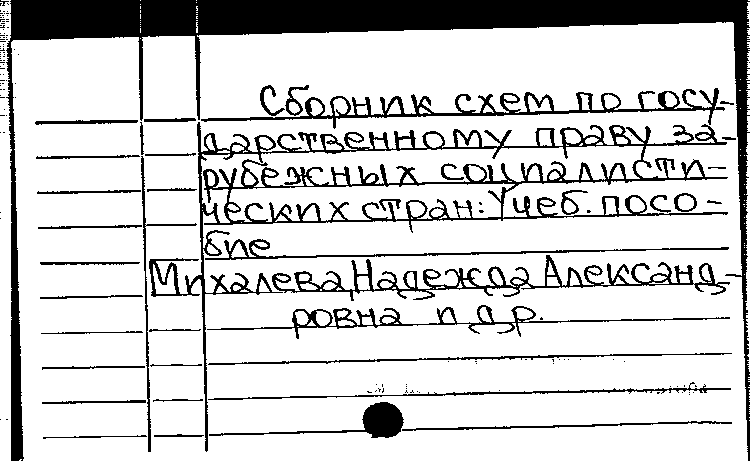 Сборник схем по госу-
дарственному праву за-
рубежных социалисти-
ческих стран: Учеб. посо-
бие
Михалева, Надежда Александ-
ровна и др.